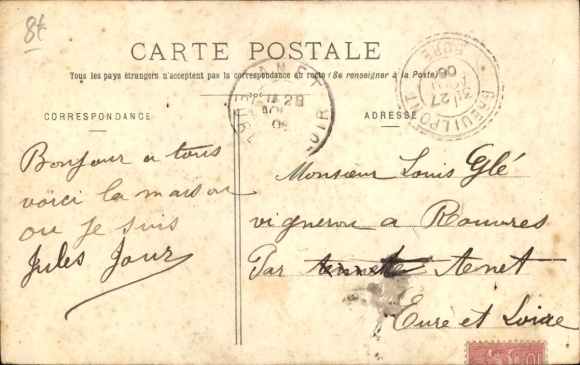 8f
CARTE POSTALE
Tous les pays étrangers n'acceptent pas la correspondance au recto (Se renseigner à la Poste)
CORRESPONDANCE
ADRESSE
ANET
EURE
BREUILPONT
EURE
27
06
Bonjour a tous
voici la maison
ou je suis
Jules Jour
Monsieur Louis Glé
vigneron a Rouvres
Par Anet
Eure et Loire
10